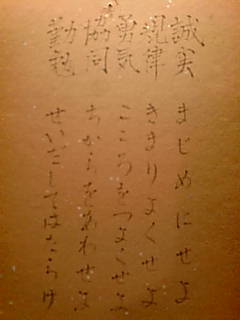 誠実 まじめにせよ
規律 きまりよくせよ
勇気 こころをつよくせよ
協同 ちからをあわせよ
勤勉 せいだしてはたらけ